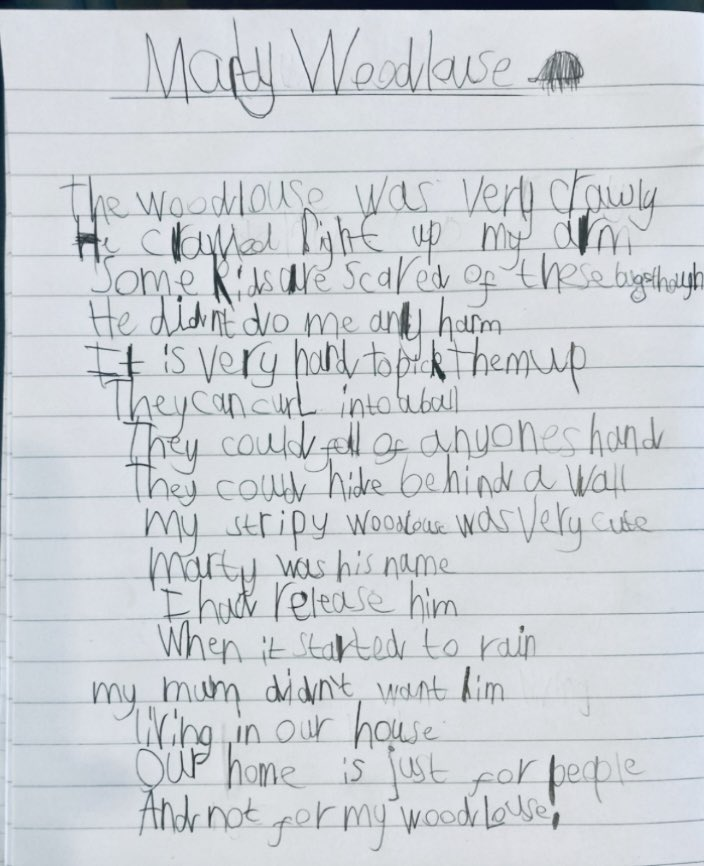 Marty Woodlouse
The woodlouse was very crawly
He crawled Right up my arm
Some kids are scared of these bugs though
He didn't do me any harm
It is very hard to pick them up
They can curl into a ball
They could fall of anyones hand
They could hide behind a wall
My stripy woodlouse was very cute
Marty was his name
I had release him
When it started to rain
my mum didn't want him
living in our house
Our home is just for people
And not for my woodlouse!